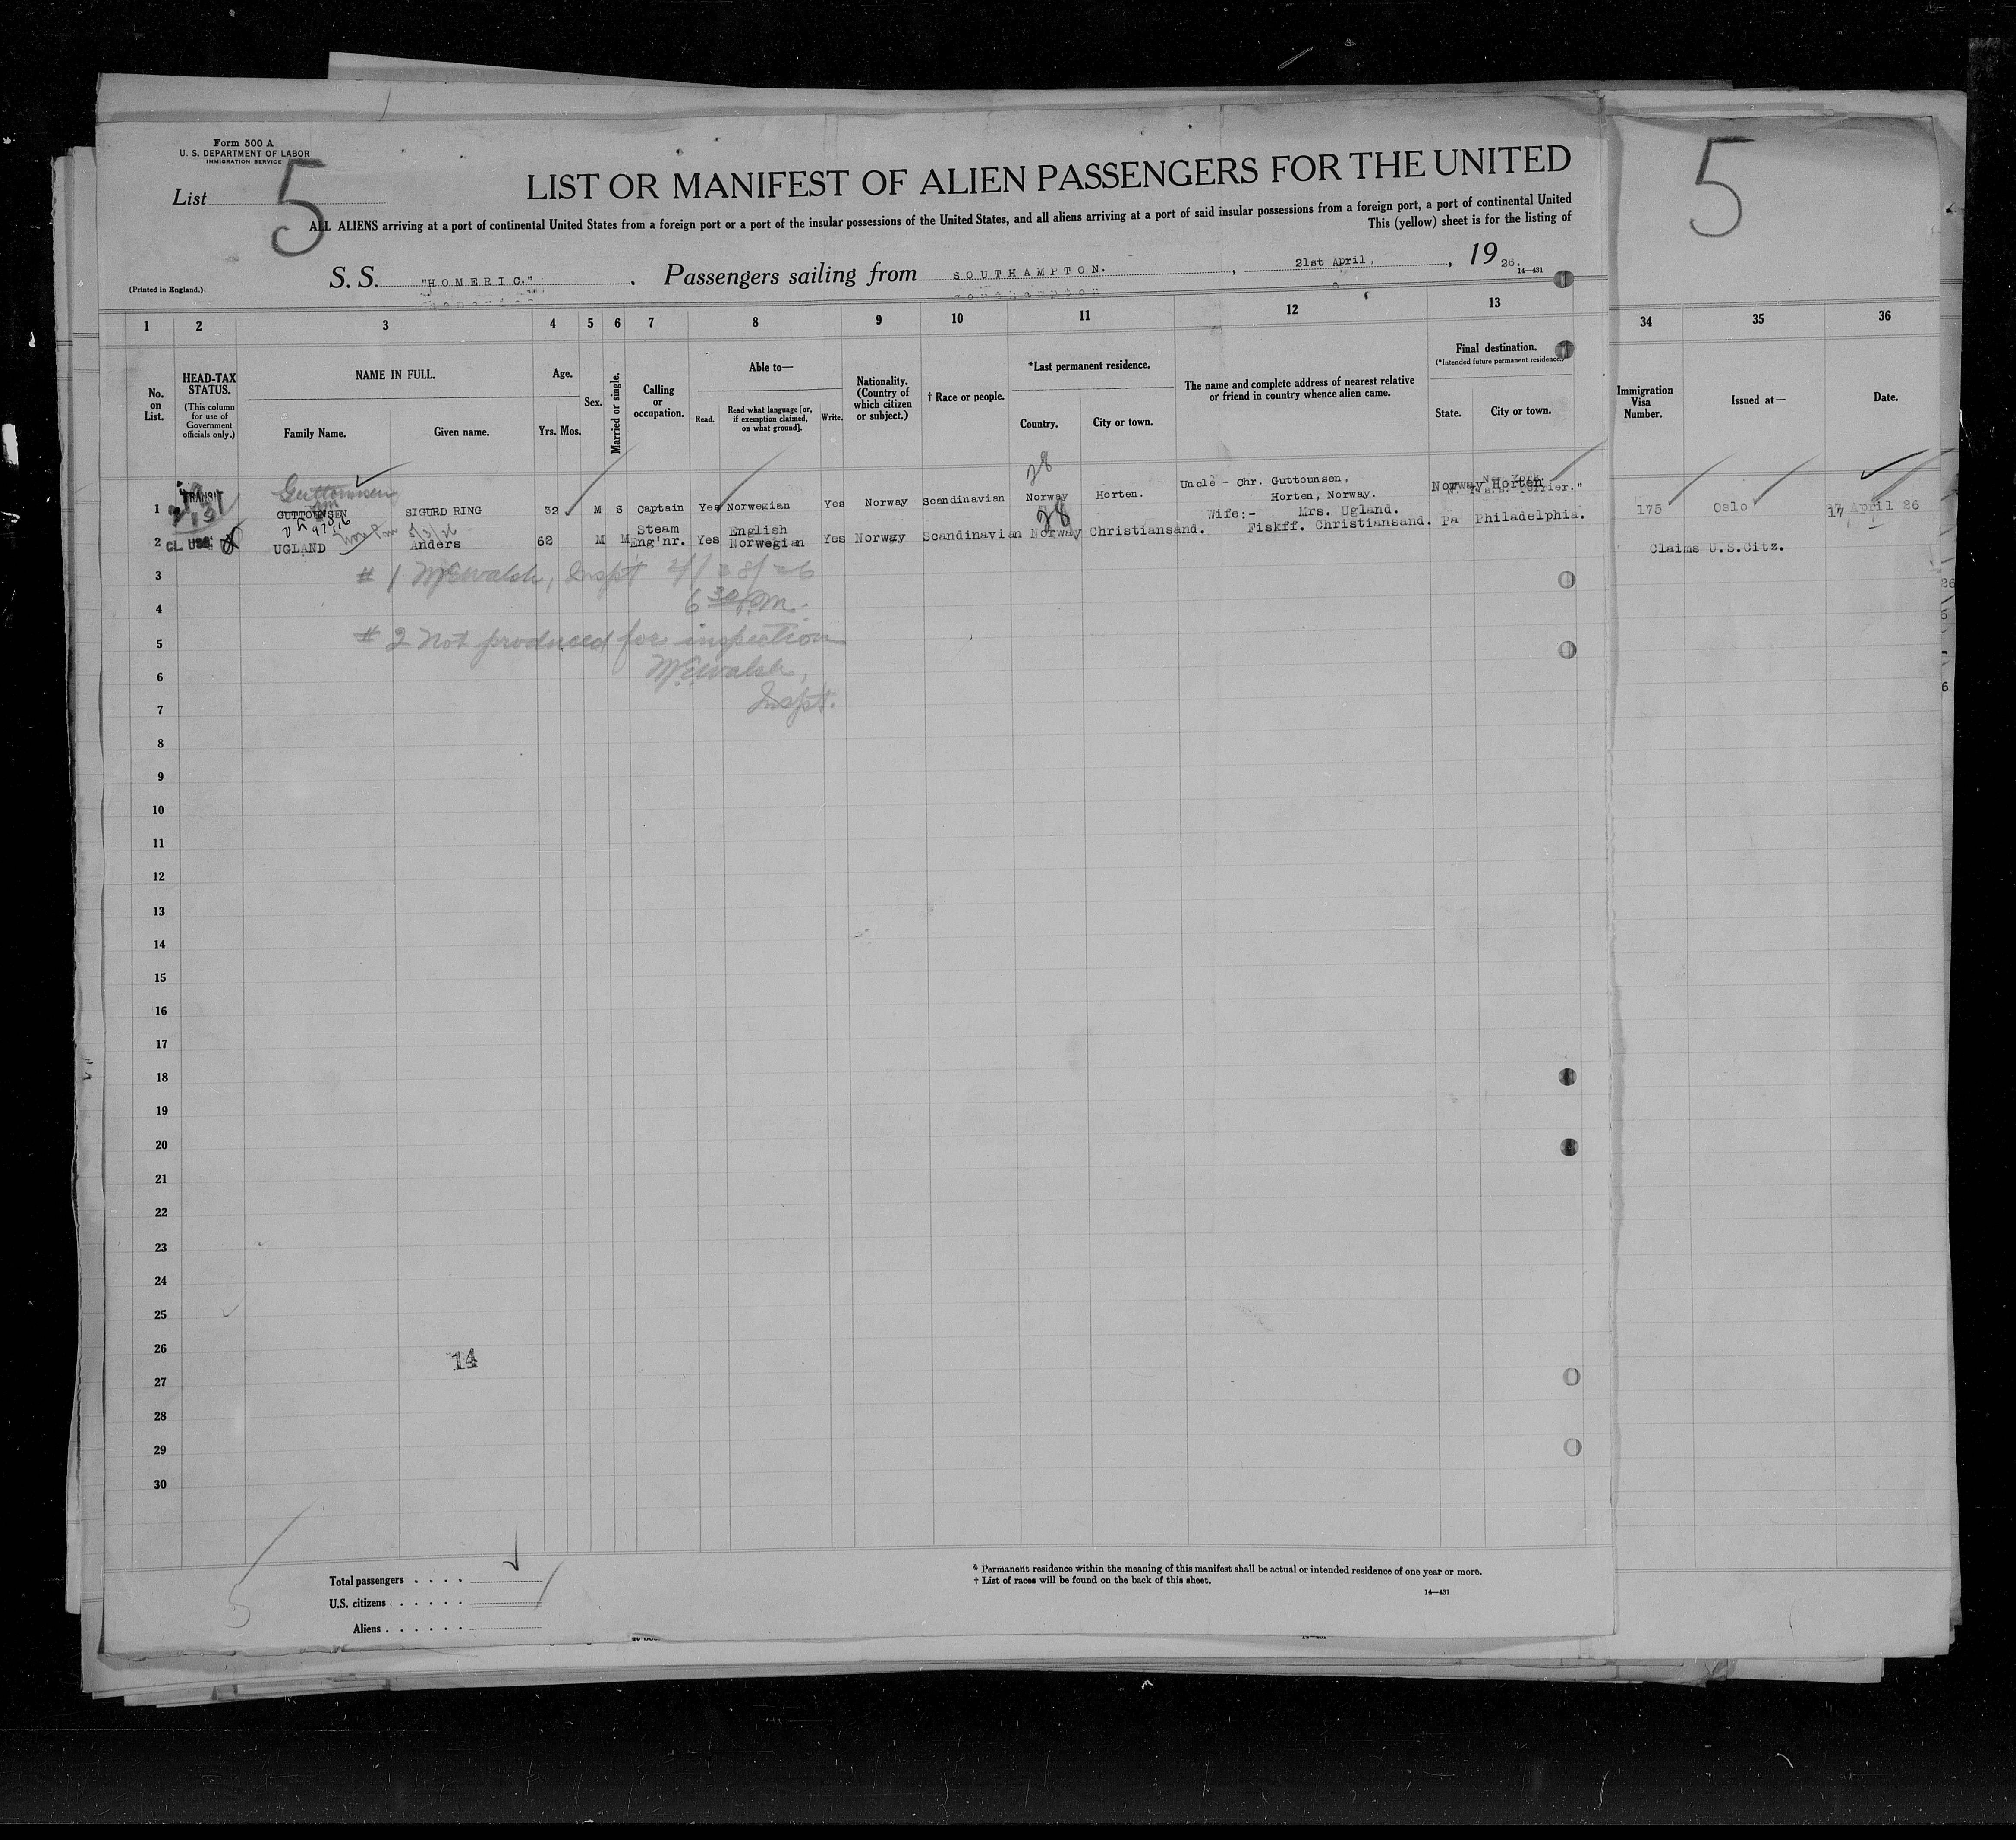 Form 500 A
U. S. DEPARTMENT OF LABOR
IMMIGRATION SERVICE
List 5
5
LIST OR MANIFEST OF ALIEN PASSENGERS FOR THE UNITED
ALL ALIENS arriving at a port of continental United States from a foreign port or a port of the insular possessions of the United States, and all aliens arriving at a port of said insular possessions from a foreign port, a port of continental United
This (yellow) sheet is for the listing of
S. S. "HOMERIC." Passengers sailing from SOUTHAMPTON. , 21st April, , 19 26.
14—431
(Printed in England.)
1 2 3 4 5 6 7 8 9 10 11 12 13 34 35 36
No. on List.
HEAD-TAX STATUS.
(This column for use of Government officials only.)
NAME IN FULL.
Family Name. Given name.
Age.
Yrs. Mos.
Sex.
Married or single.
Calling or occupation.
Able to—
Read. Read what language [or, if exemption claimed, on what ground]. Write.
Nationality. (Country of which citizen or subject.)
† Race or people.
*Last permanent residence.
Country. City or town.
The name and complete address of nearest relative or friend in country whence alien came.
Final destination.
(*Intended future permanent residence.)
State. City or town.
Immigration Visa Number.
Issued at—
Date.
28
Guttormsen
1 TRANSIT GUTTOUNSEN SIGURD RING 32 M S Captain Yes Norwegian Yes Norway Scandinavian Norway Horten. Uncle - Chr. Guttounsen, Horten, Norway. Norway Horten 175 Oslo 17 April 26
28
2 CL USC UGLAND Anders 62 M M Steam Eng'nr. Yes English Norwegian Yes Norway Scandinavian Norway Christiansand. Wife:- Mrs. Ugland. Fiskff. Christiansand. Pa Philadelphia. Claims U.S.Citz.
# 1 McEwalsh, Inspt 4/28/26
6 30 P.M.
# 2 Not produced for inspection
McEwalsh,
Inspt.
3
4
5
6
7
8
9
10
11
12
13
14
15
16
17
18
19
20
21
22
23
24
25
26
14
27
28
29
30
5
Total passengers . . . .
U.S. citizens . . . . .
Aliens . . . . . .
* Permanent residence within the meaning of this manifest shall be actual or intended residence of one year or more.
† List of races will be found on the back of this sheet.
14—431